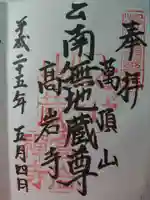 奉拝
萬頂山
南無地蔵尊
高岩寺
平成二十五年五月四日